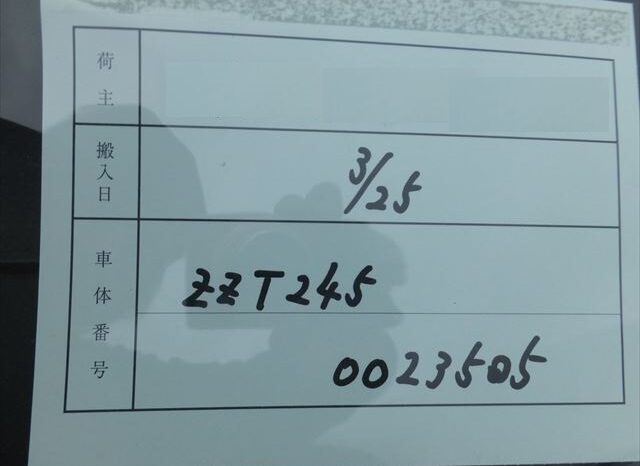 荷主
搬入日
3/25
車体番号
ZZT245
0023505